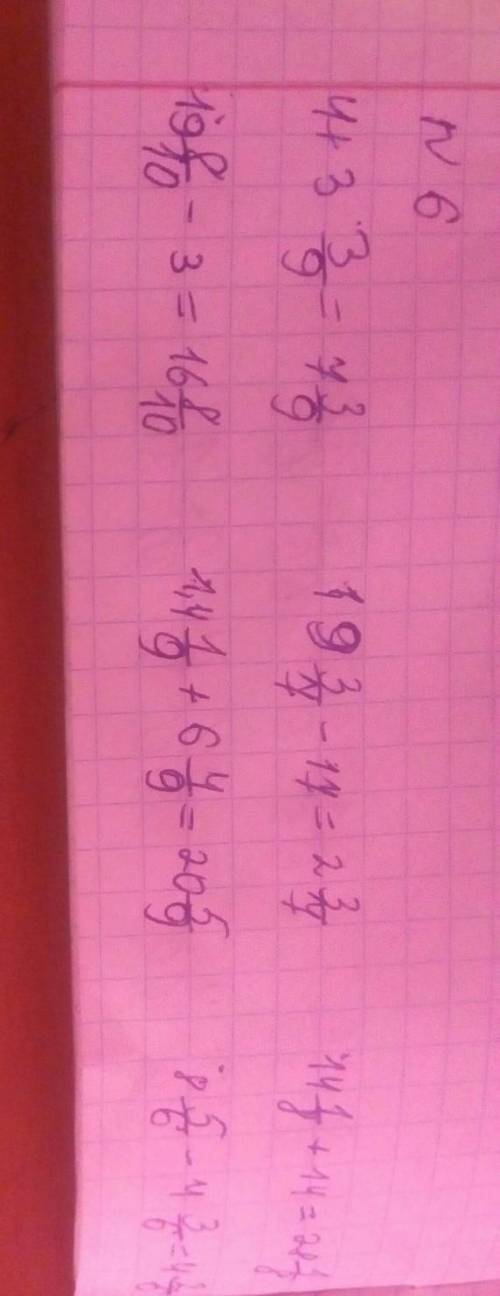 N 6
4 + 3 3/9 = 7 3/9 19 3/7 - 17 = 2 3/7 14 1/8 + 14 = 28 1/8
19 8/10 - 3 = 16 8/10 14 1/9 + 6 4/9 = 20 5/9 8 5/6 - 4 3/6 = 4 2/6